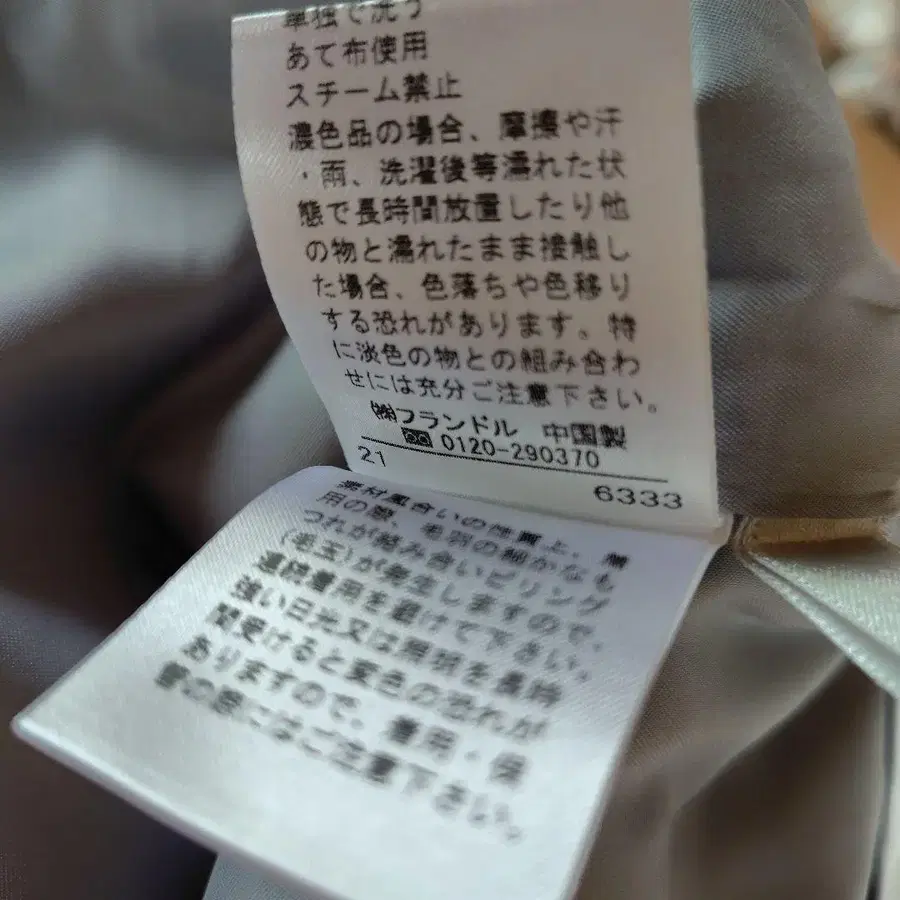 単独で洗う
あて布使用
スチーム禁止
濃色品の場合、摩擦や汗
・雨、洗濯後等濡れた状
態で長時間放置したり他
の物と濡れたまま接触し
た場合、色落ちや色移り
する恐れがあります。特
に淡色の物との組み合わ
せには充分ご注意下さい。
㈱フランドル 中国製
0120-290370
21
6333
素材風合いの性質上、着
用の際、毛羽の細かなも
つれが絡み合いピリング
(毛玉)が発生しますので、
連続着用を避けて下さい。
強い日光又は照明を長時
間受けると変色の恐れが
ありますので、着用・保
管の際にはご注意下さい。